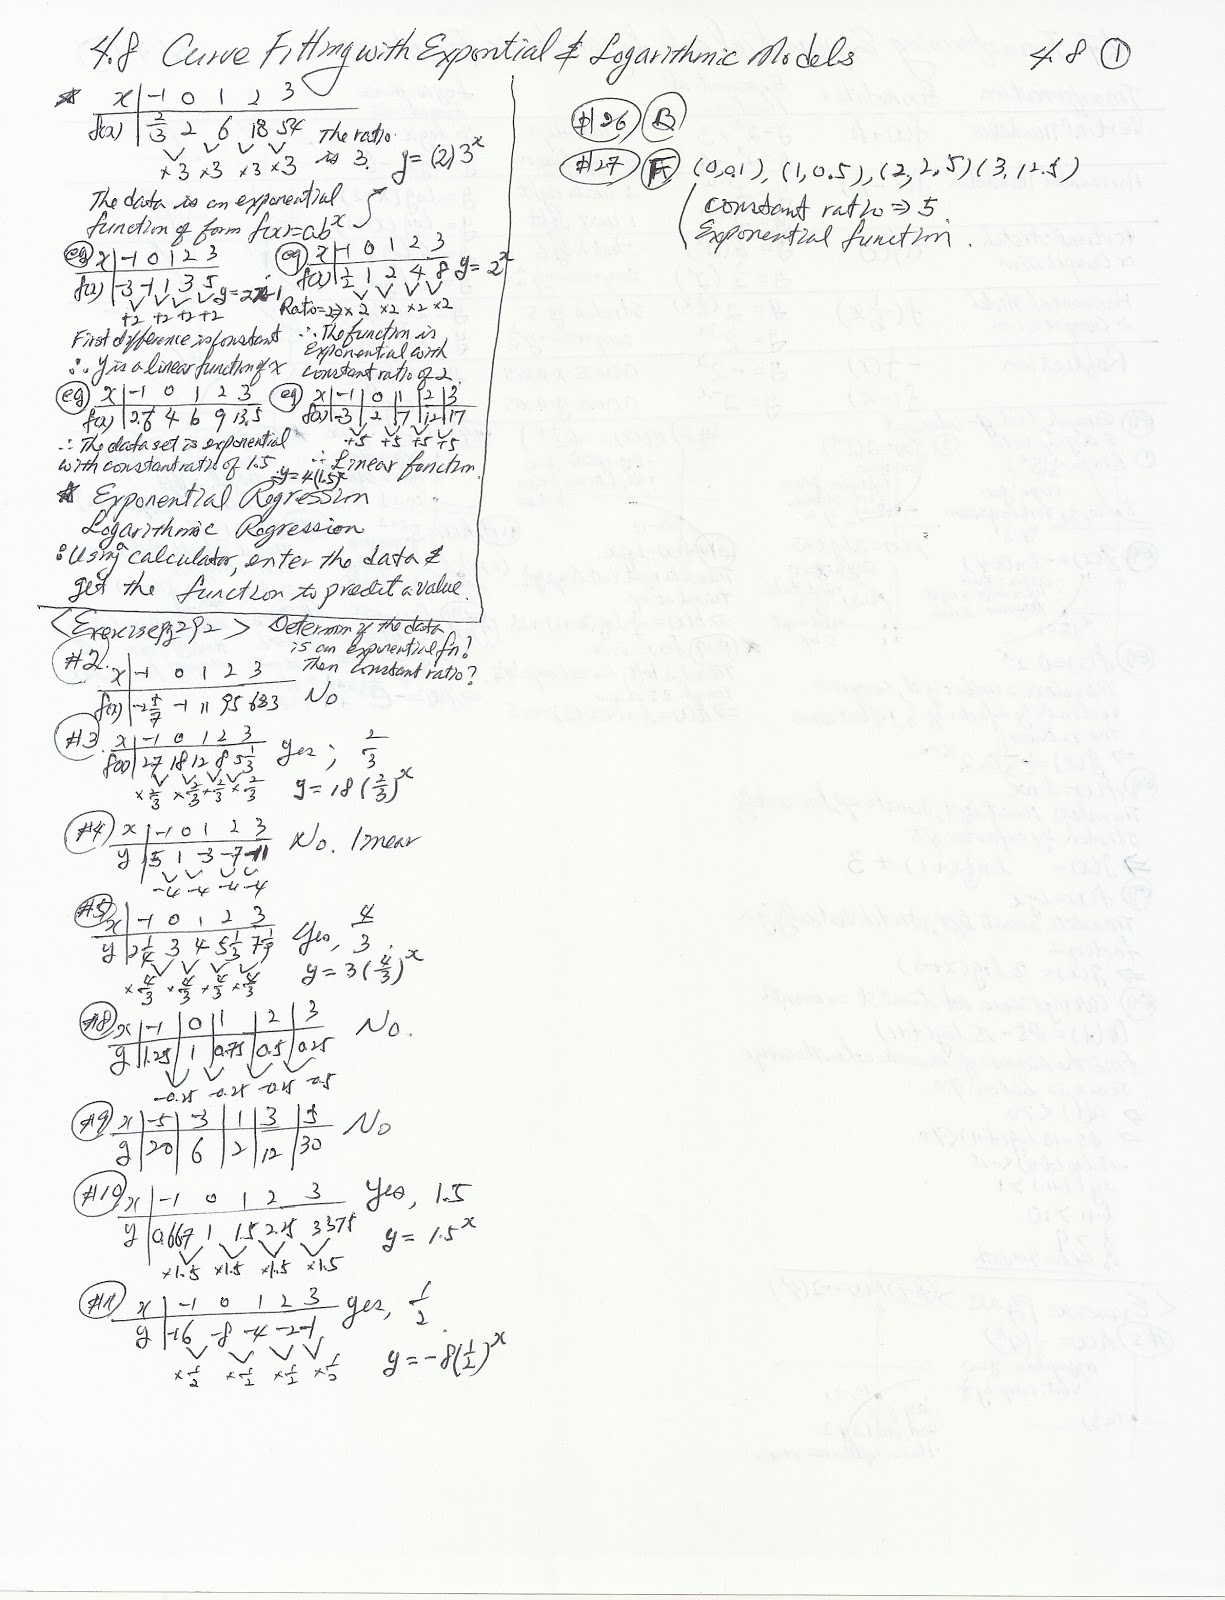 4.8 Curve Fitting with Expontial & Logarithmic Models
4.8 ①
* x | -1 0 1 2 3
f(x) | 2/3 2 6 18 54
×3 ×3 ×3 ×3
The ratio
is 3.
y = (2)3^x
The data is an exponential
function of form f(x)=ab^x
eg x | -1 0 1 2 3
f(x) | -3 -1 1 3 5
y = 2x-1
+2 +2 +2 +2
First difference is constant
∴ y is a linear function of x
eg x | -1 0 1 2 3
f(x) | 1/2 1 2 4 8
y = 2^x
Ratio=2 ⇒ ×2 ×2 ×2 ×2
∴ The function is
Exponential with
constant ratio of 2.
eg x | -1 0 1 2 3
f(x) | 2.6 4 6 9 13.5
∴ The data set is exponential
with constant ratio of 1.5
⇒ y = 4(1.5)^x
eg x | -1 | 0 | 1 | 2 | 3
f(x) | -3 | 2 | 7 | 12 | 17
+5 +5 +5 +5
∴ Linear function.
* Exponential Regression
Logarithmic Regression
: Using calculator, enter the data &
get the function to predit a value.
<Exercise pg292> Determin if the data
is an exponential fn?
Then Constant ratio?
#2. x | -1 0 1 2 3
f(x) | -2 5/7 -1 11 95 683
No
#3. x | -1 0 1 2 3
f(x) | 27 18 12 8 5 1/3
×2/3 ×2/3 ×2/3 ×2/3
yes ; 2/3
y = 18(2/3)^x
#4 x | -1 0 1 2 3
y | 5 1 -3 -7 -11
-4 -4 -4 -4
No. linear
#5 x | -1 0 1 2 3
y | 2 1/4 3 4 5 1/3 7 1/9
×4/3 ×4/3 ×4/3 ×4/3
Yes, 4/3.
y = 3(4/3)^x
#8 x | -1 | 0 | 1 | 2 | 3
y | 1.25 | 1 | 0.75 | 0.5 | 0.25
-0.25 -0.25 -0.25 -0.5
No.
#9 x | -5 | -3 | 1 | 3 | 5
y | 20 | 6 | 2 | 12 | 30
No
#10 x | -1 0 1 2 3
y | 0.667 1 1.5 2.25 3.375
×1.5 ×1.5 ×1.5 ×1.5
Yes, 1.5
y = 1.5^x
#11 x | -1 0 1 2 3
y | -16 -8 -4 -2 -1
×1/2 ×1/2 ×1/2 ×1/2
yes, 1/2.
y = -8(1/2)^x
#26 B
#27 F (0,0.1), (1,0.5), (2,2.5) (3,12.5)
constant ratio ⇒ 5.
Exponential function.